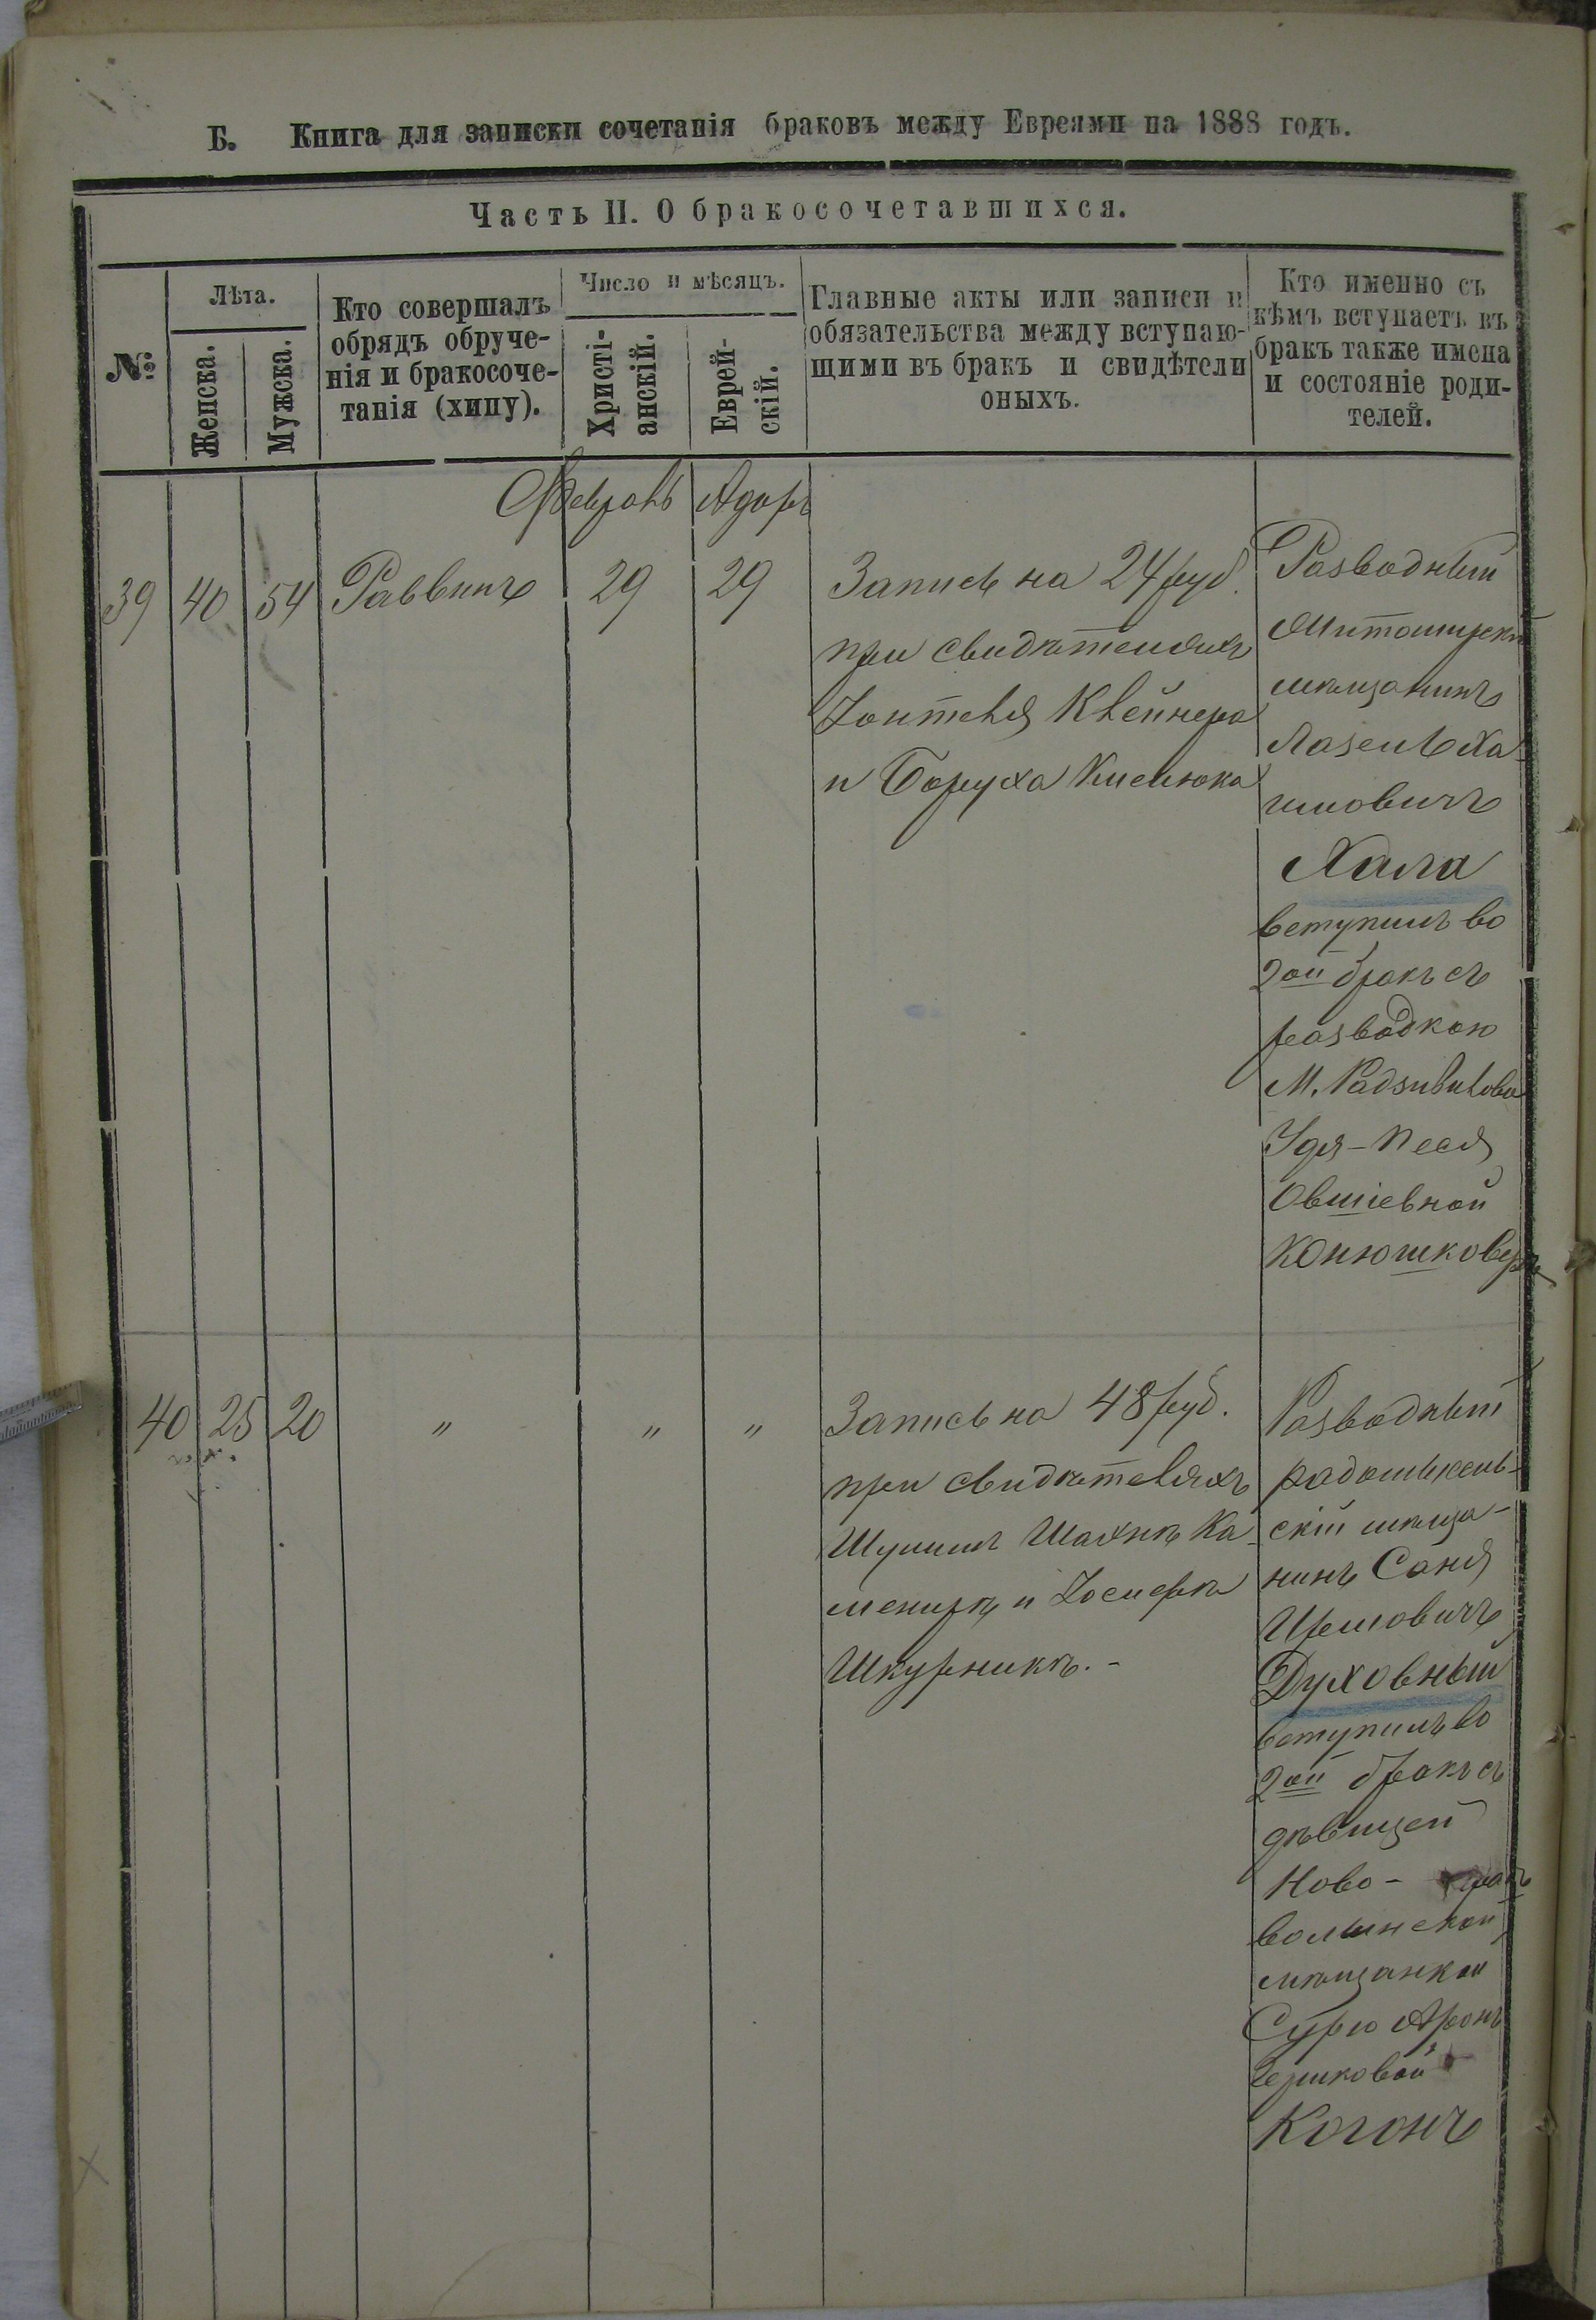 Б. Книга для записки сочетанія браковъ между Евреями на 1888 годъ.
Часть II. О бракосочетавшихся.
№
Лѣта.
Женска.
Мужска.
Кто совершалъ
обрядъ обруче-
нія и бракосоче-
танія (хипу).
Число и мѣсяцъ.
Христі-
анскій.
Еврей-
скій.
Главные акты или записи и
обязательства между вступаю-
щими въ бракъ и свидѣтели
оныхъ.
Кто именно съ
кѣмъ вступаетъ въ
бракъ также имена
и состояніе роди-
телей.
Февраль Адаръ
39 40 54 Раввинъ 29 29
Запись на 24 руб.
при свидѣтеляхъ
Іонтеля Клейнера
и Боруха Киелюка
Разводный
мѣщанинъ
Лазель Ха-
имовичъ
Хала
вступилъ во
2ой бракъ съ
разводкою
М. Радзивилова
Удя-Песя
Овшіевной
Конюшковеръ
40 25 20 " " "
Запись на 48 руб.
при свидѣтеляхъ
Шулимѣ Шахнѣ Ка-
менирѣ и Іосифѣ
Шкурникѣ.-
Разводный
радомысль-
скій мѣща-
нинъ Саня
Ицковичъ
Духовный
вступилъ во
2ой бракъ съ
дѣвицей
Ново-
волынской
мѣщанкой
Сурю Аронъ
Берковой
Коганъ